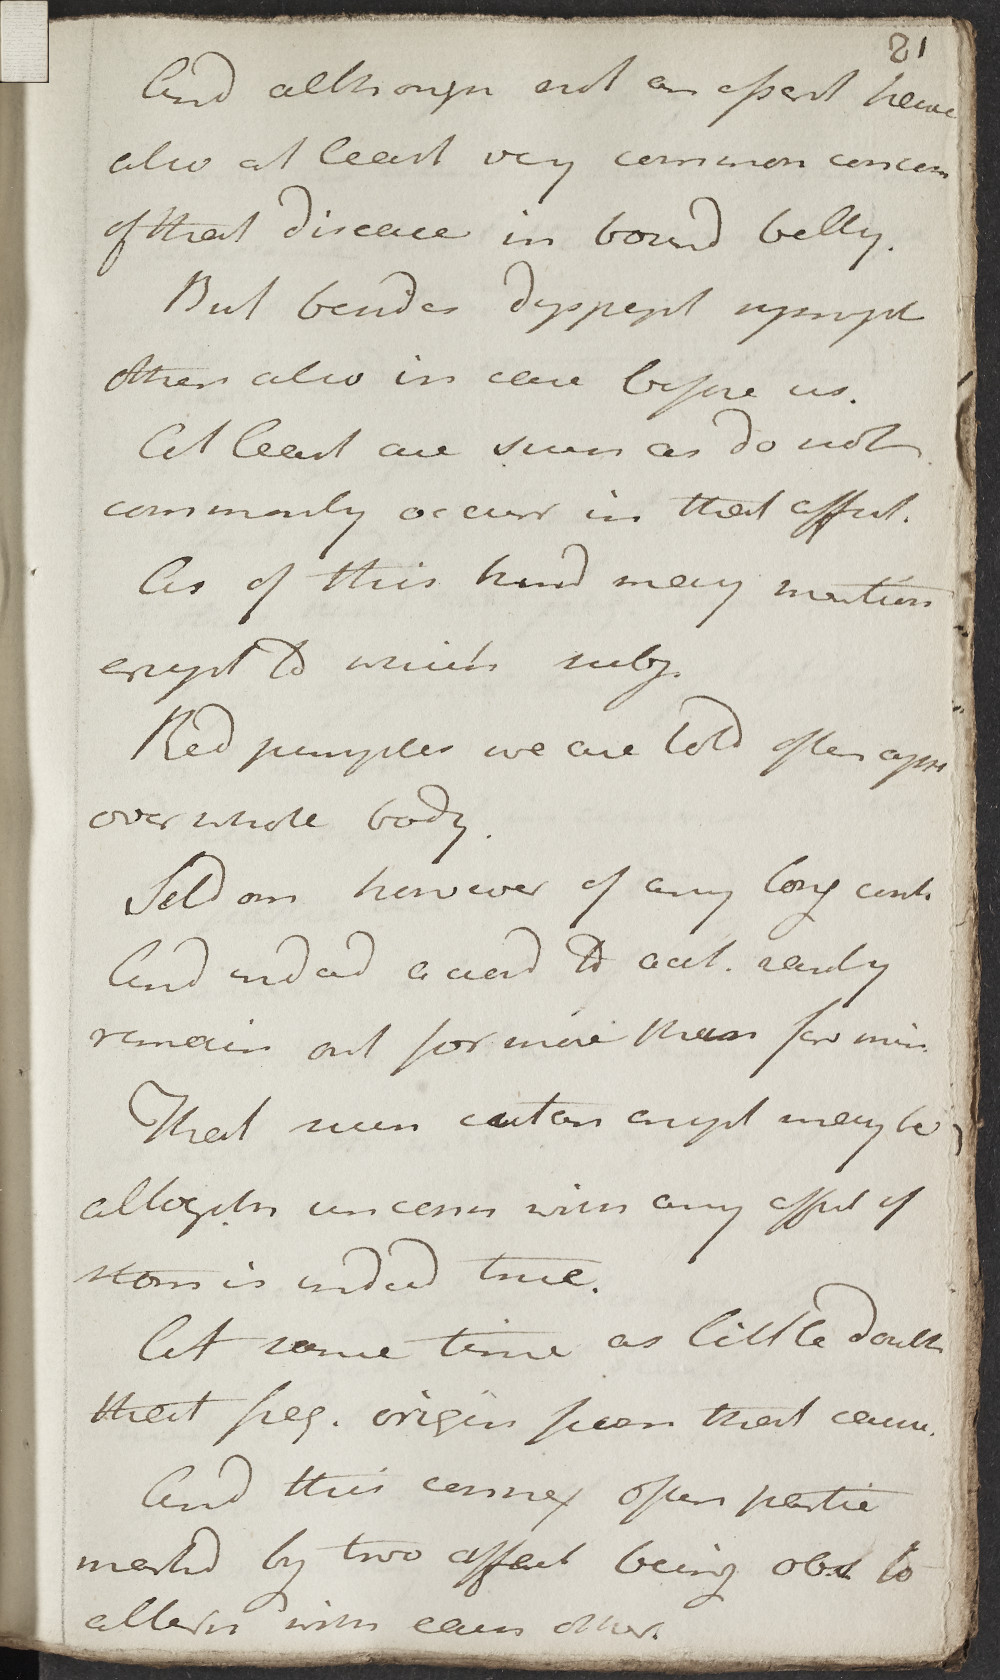 81
And although not an essent have
also at least very common concom
of that disease in bound belly.
But besides dyspept sympt
others also in case before us.
At least are such as do not
commonly occurr in that affect.
As of this kind may mention
erupt to which subj.
Red pimples we are told often appe
over whole body.
Seldom however of any long cont.
And indeed accord to acct. rarely
remain out for more than few min.
That such cutan erupt may be
altogeth unconn with any affect of
stom is indeed true.
At same time as little doubt
that freq. origin from that cause.
And this connex often partic
marked by two affect being obs to
altern with each other.